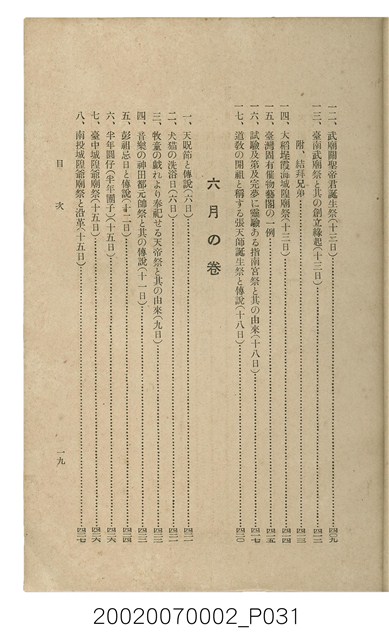 一二、武廟關聖帝君誕生祭(十三日)
一三、臺南武廟祭と其の創立緣起(十三日)
附、結拜兄弟
一四、大稻埕霞海城隍廟祭(十三日)
一五、臺灣固有催物藝閣の一例
一六、試驗及第及完夢に靈驗ある指南宮祭と其の由來(十八日)
一七、道敎の開祖と稱する張天師誕生祭と傳說(十八日)
六月の卷
一、天貺節と傳說(六日)
二、犬猫の洗浴日(六日)
三、牧童の戲れより奉祀せる天帝祭と其の由來(九日)
四、音樂の神田都元帥祭と其の傳說(十一日)
五、彭祖忌日と傳說(十二日)
六、半年圓仔(半年團子)(十五日)
七、臺中城隍爺廟祭(十五日)
八、南投城隍爺廟祭と沿革(十五日)
目次
一九
20020070002_P031